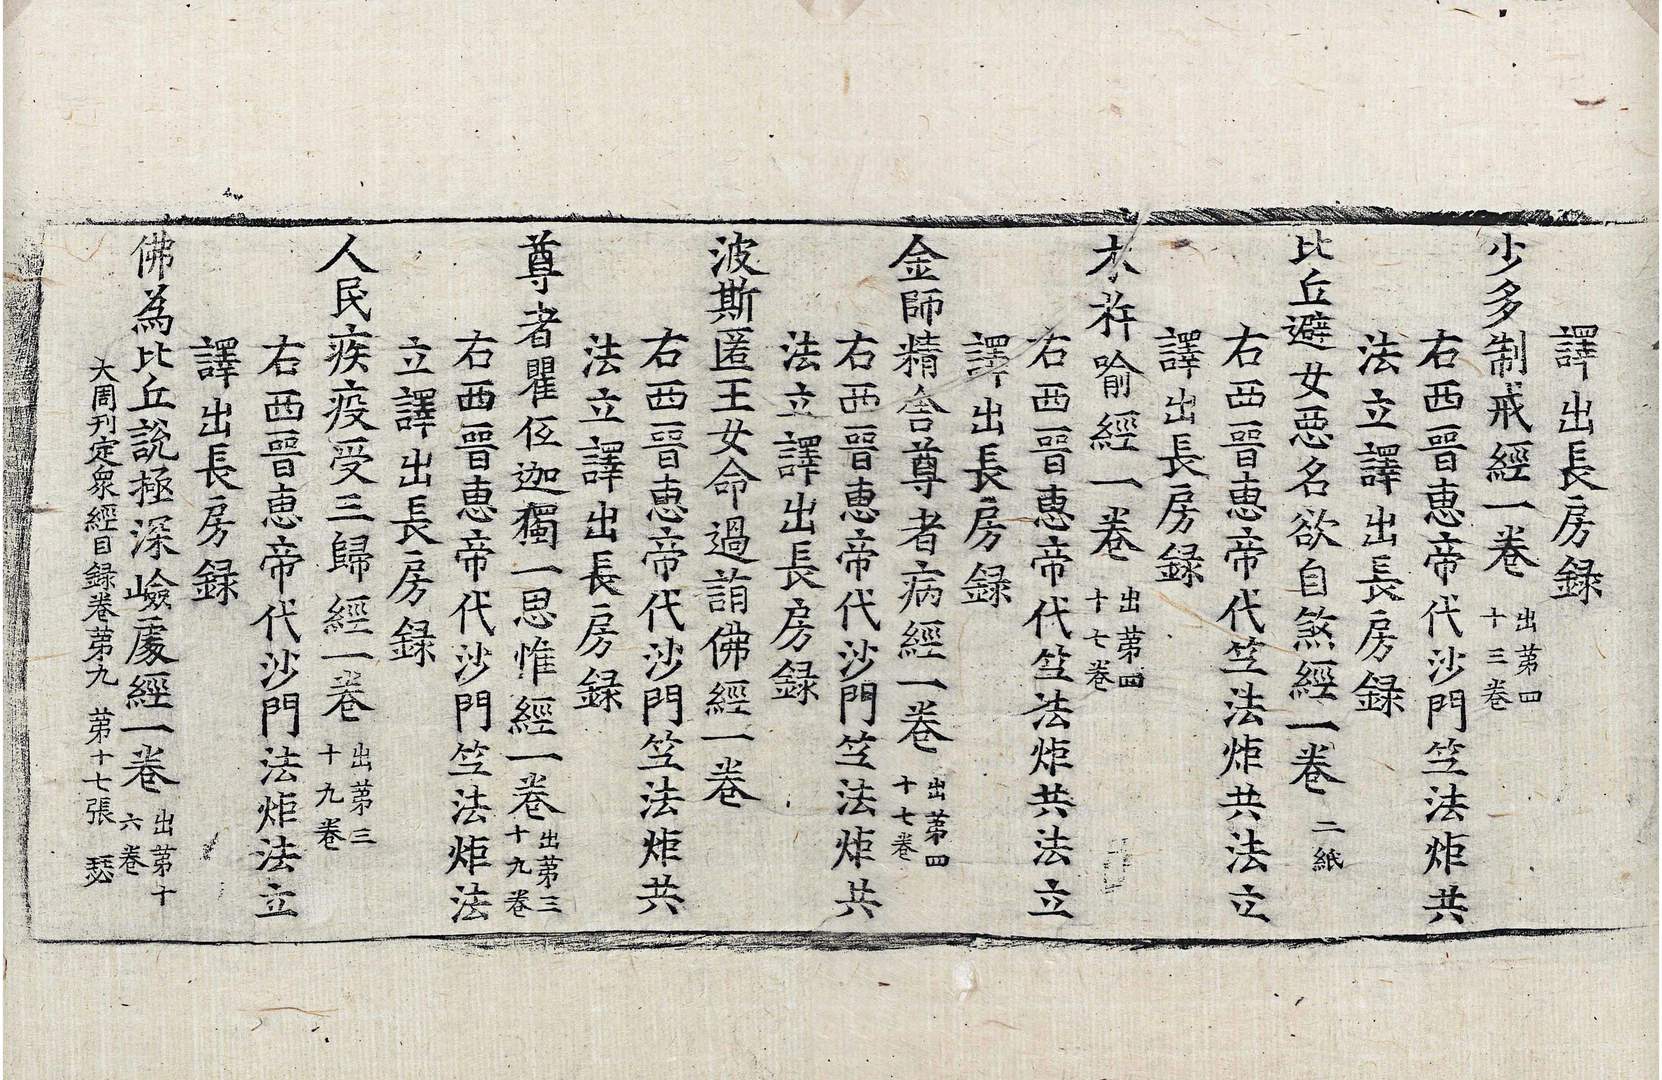 譯出長房録
少多制戒經一卷 出第四十三卷
右西晉恵帝代沙門竺法炬共
法立譯出長房録
比丘避女悪名欲自煞經一卷 二紙
右西晉恵帝代竺法炬共法立
譯出長房録
木杵喻經一卷 出第四十七卷
右西晉恵帝代竺法炬共法立
譯出長房録
金師精舍尊者病經一卷 出第四十七卷
右西晉恵帝代沙門竺法炬共
法立譯出長房録
波斯匿王女命過詣佛經一卷
右西晉恵帝代沙門竺法炬共
法立譯出長房録
尊者瞿低迦獨一思惟經一卷 出第三十九卷
右西晉恵帝代沙門竺法炬法
立譯出長房録
人民疾疫受三歸經一卷 出第三十九卷
右西晉恵帝代沙門法炬法立
譯出長房録
佛為比丘說極深嶮處經一卷 出第十六卷
大周刊定衆經目録卷第九 第十七張 瑟